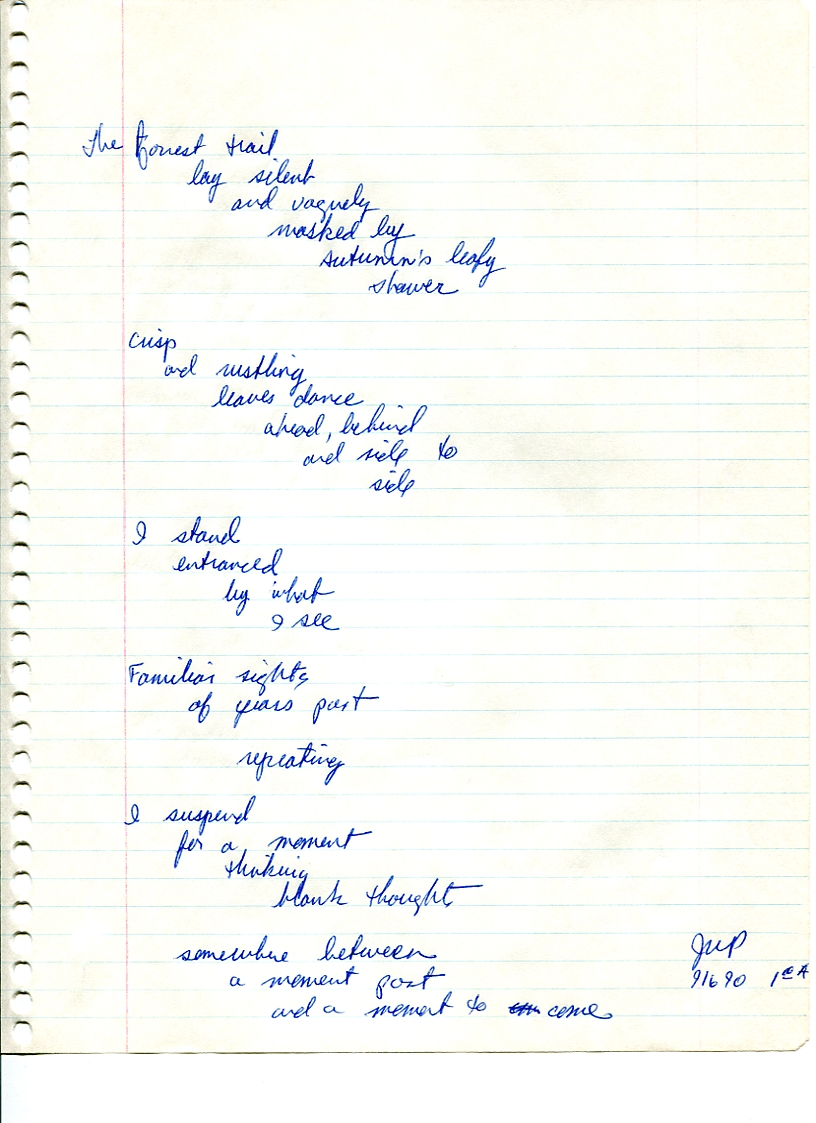 The forrest trail
lay silent
and vaguely
masked by
autumn's leafy
shower
crisp
and rustling
leaves dance
ahead, behind
and side to
side
I stand
entranced
by what
I see
Familiar sights
of years past
repeating
I suspend
for a moment
thinking
blank thoughts
somewhere between
a moment past
and a moment to come
JWP
9/6 90